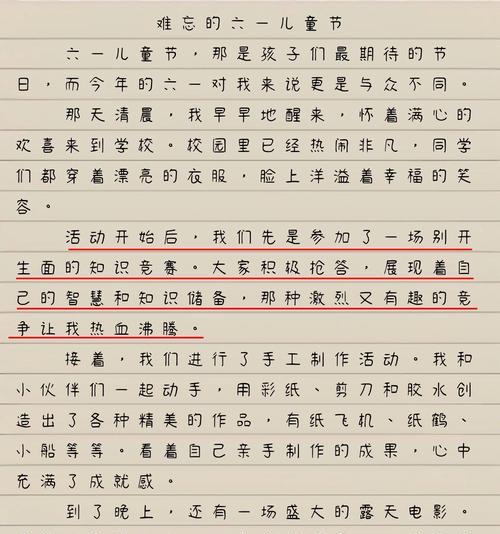 难忘的六一儿童节
六一儿童节，那是孩子们最期待的节
日，而今年的六一对我来说更是与众不同。
那天清晨，我早早地醒来，怀着满心的
欢喜来到学校。校园里已经热闹非凡，同学
们都穿着漂亮的衣服，脸上洋溢着幸福的笑
容。
活动开始后，我们先是参加了一场别开
生面的知识竞赛。大家积极抢答，展现着自
己的智慧和知识储备，那种激烈又有趣的竞
争让我热血沸腾。
接着，我们进行了手工制作活动。我和
小伙伴们一起动手，用彩纸、剪刀和胶水创
造出了各种精美的作品，有纸飞机、纸鹤、
小船等等。看着自己亲手制作的成果，心中
充满了成就感。
到了晚上，还有一场盛大的露天电影。